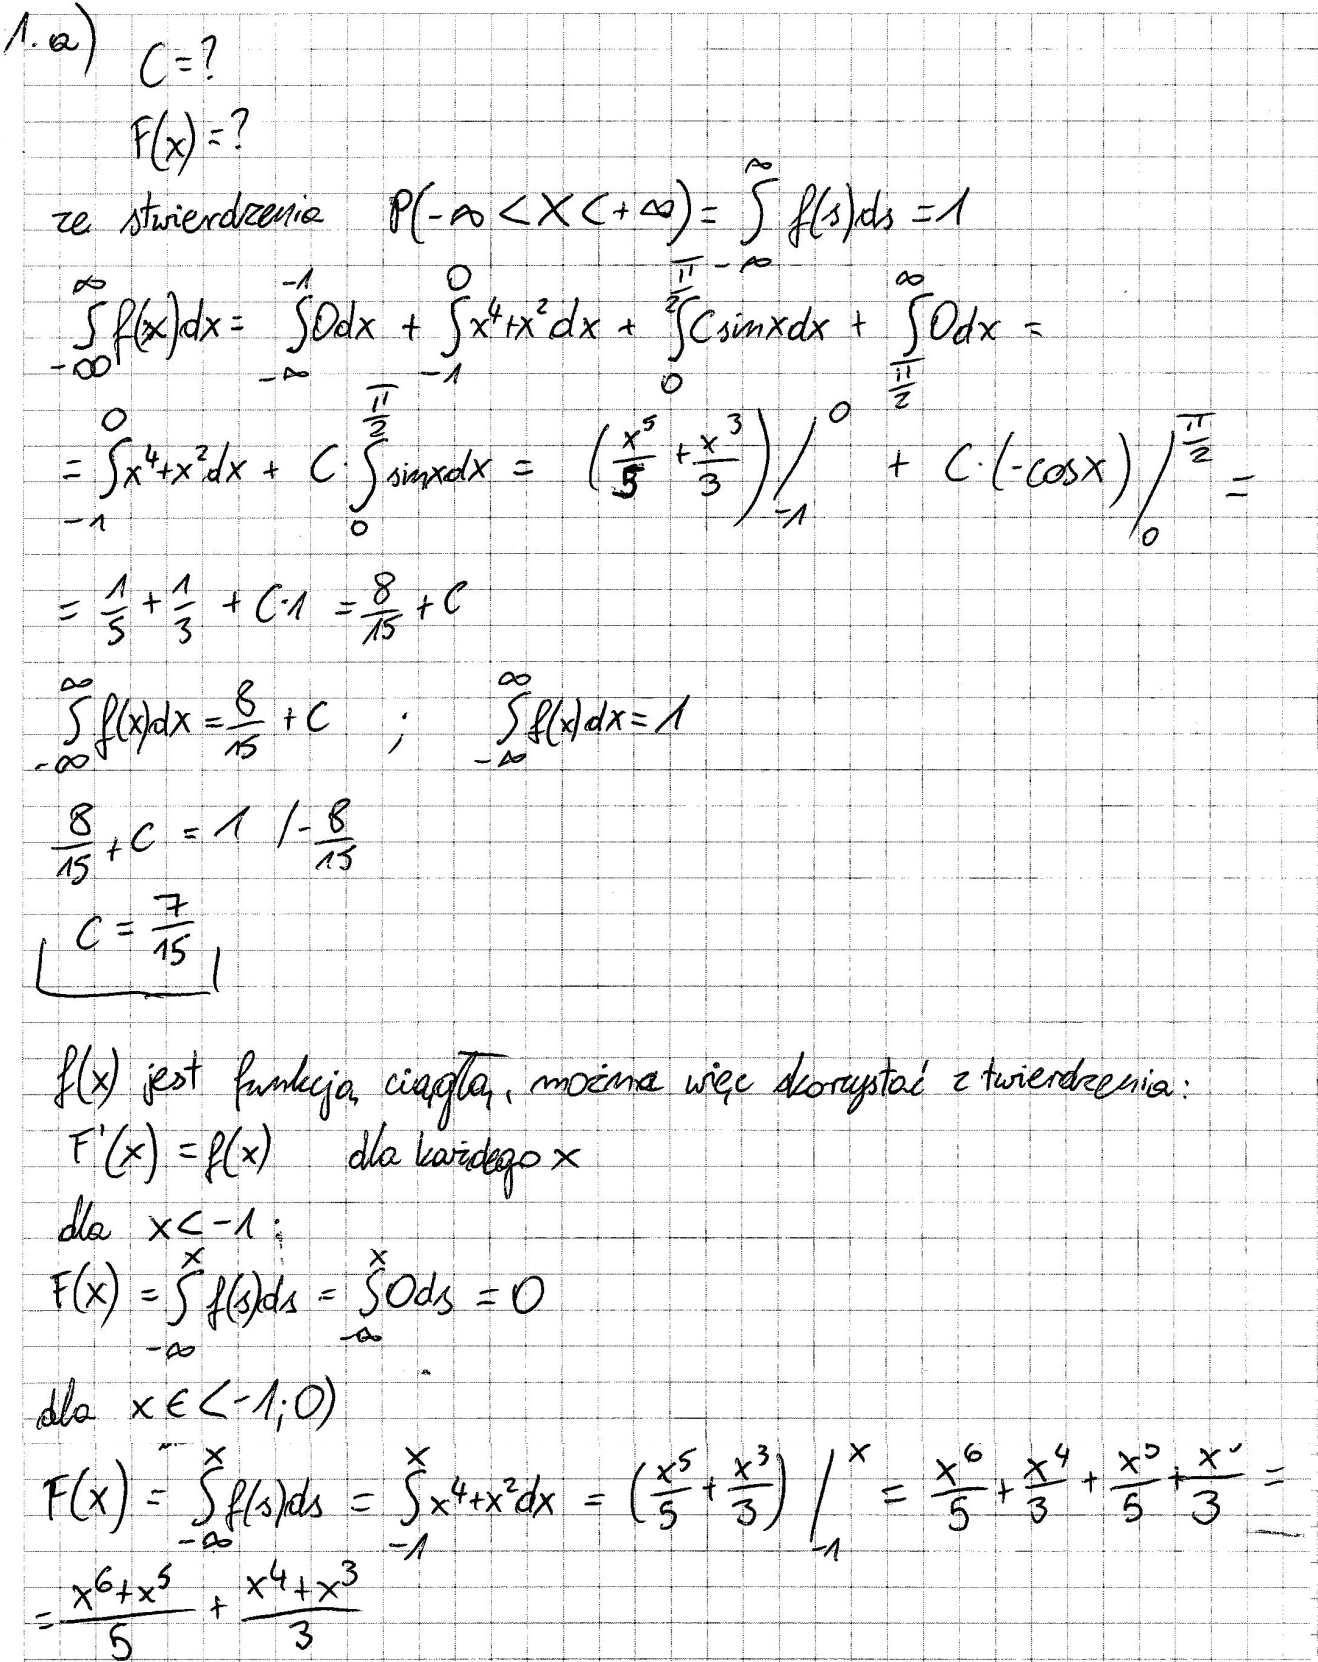 1. a) C = ?
F(x) = ?
ze stwierdzenia P(-∞ < X < +∞) = ∫_{-∞}^{∞} f(s)ds = 1
∫_{-∞}^{∞} f(x)dx = ∫_{-∞}^{-1} 0dx + ∫_{-1}^{0} x⁴+x² dx + ∫_{0}^{π/2} C sinx dx + ∫_{π/2}^{∞} 0dx =
= ∫_{-1}^{0} x⁴+x² dx + C · ∫_{0}^{π/2} sinx dx = (x⁵/5 + x³/3) /_{-1}^{0} + C·(-cosx) /_{0}^{π/2} =
= 1/5 + 1/3 + C·1 = 8/15 + C
∫_{-∞}^{∞} f(x)dx = 8/15 + C ; ∫_{-∞}^{∞} f(x)dx = 1
8/15 + C = 1 /- 8/15
C = 7/15
f(x) jest funkcją ciągłą, można więc skorzystać z twierdzenia:
F'(x) = f(x) dla każdego x
dla x < -1 :
F(x) = ∫_{-∞}^{x} f(s)ds = ∫_{-∞}^{x} 0ds = 0
dla x ∈ <-1;0)
F(x) = ∫_{-∞}^{x} f(s)ds = ∫_{-1}^{x} x⁴+x² dx = (x⁵/5 + x³/3) /_{-1}^{x} = x⁶/5 + x⁴/3 + x⁵/5 + x³/3 =
= (x⁶+x⁵)/5 + (x⁴+x³)/3